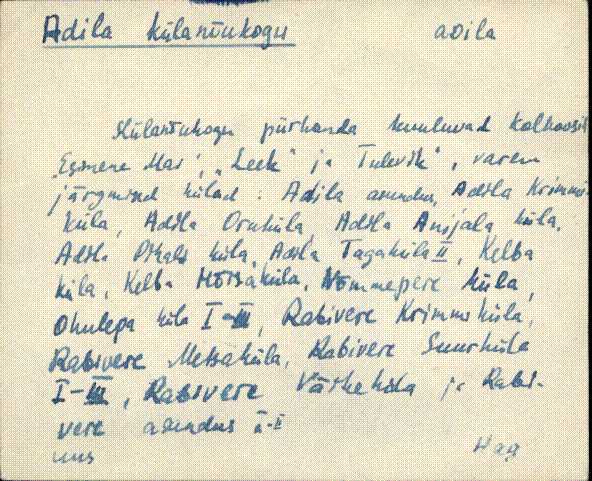 Adila külanõukogu adila
Külanõukogu piirkonda kuuluvad kolhoosid
"Esimene Mai", "Leek" ja "Tulevik", varem
järgmised külad: Adila asundus, Adila Krimmi-
küla, Adila Oruküla, Adila Anijala küla,
Adila küla, Adila Tagaküla II, Kelba
küla, Kelba Metsaküla, Nõmmepere küla,
Ohulepa küla I-III, Rabivere Krimmi küla,
Rabivere Metsaküla, Rabivere Suurküla
I-III, Rabivere Väikeküla ja Rabi-
vere asundus